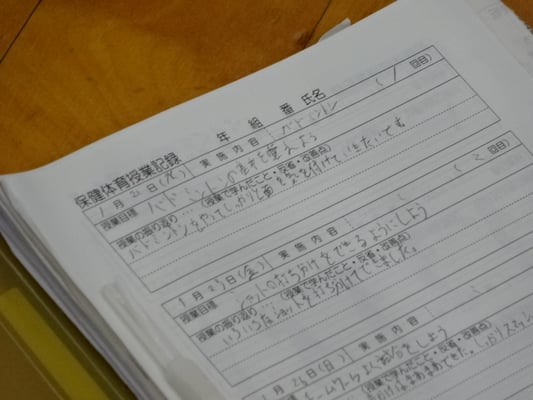 保健体育授業記録 年 組 番 氏名
1月 日( ) 実施内容 バドミントン ( 1 回目)
授業目標 バドミントンの基本を覚えよう
授業の振り返り…(授業で学んだこと・反省・改善点)
バドミントンをやってしっかりと面を気を付けていきたいです
1月23日(金) 実施内容 ( 2 回目)
授業目標 ショットの打ち分けをできるようにしよう
授業の振り返り…(授業で学んだこと・反省・改善点)
いろいろなショットを打ち分けができました。
1月 日(日) 実施内容
授業目標 チームワークよく試合をしよう
(授業で学んだこと・反省・改善点)